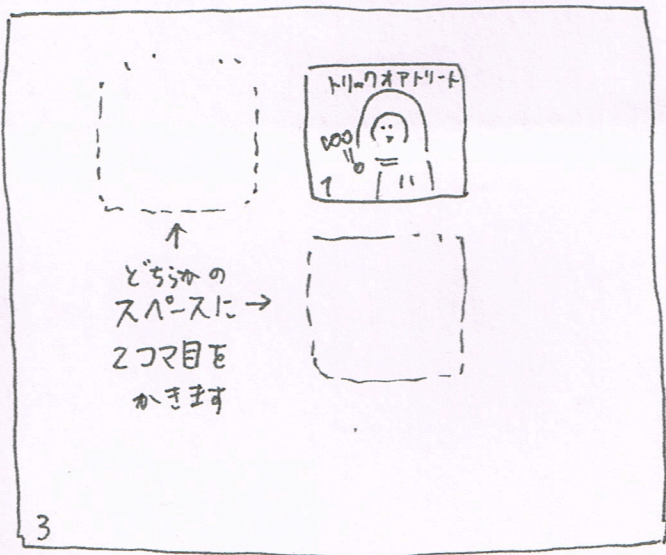 トリックオアトリート
1
どちらかの
スペースに
2コマ目を
かきます
3